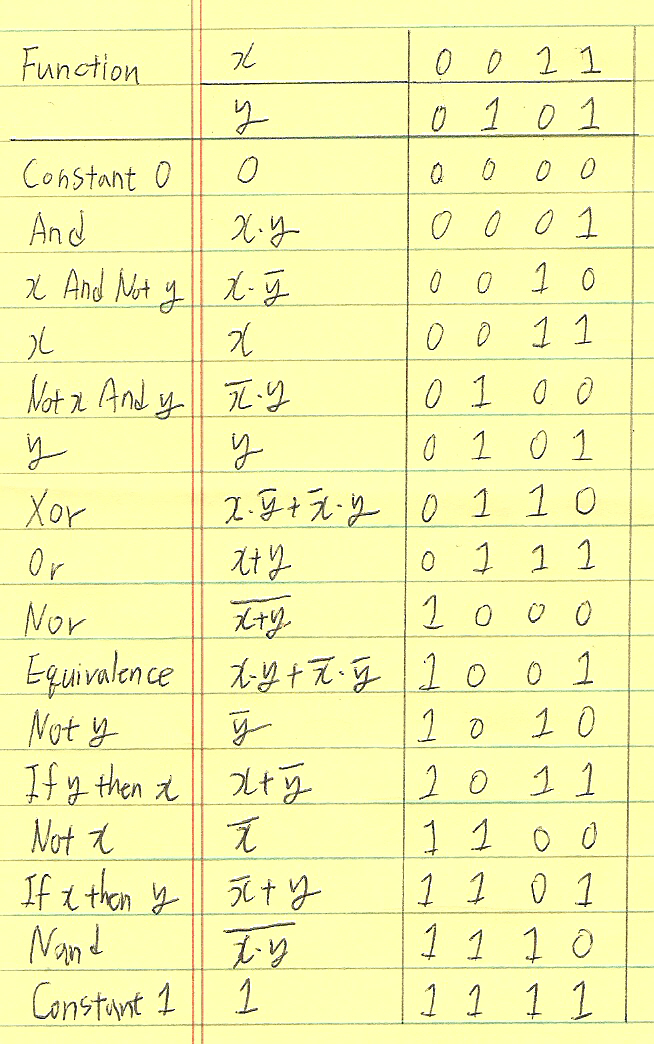 Function x 0 0 1 1
y 0 1 0 1
Constant 0 0 0 0 0 0
And x·y 0 0 0 1
x And Not y x·y̅ 0 0 1 0
x x 0 0 1 1
Not x And y x̅·y 0 1 0 0
y y 0 1 0 1
Xor x·y̅+x̅·y 0 1 1 0
Or x+y 0 1 1 1
Nor x̅+̅y̅ 1 0 0 0
Equivalence x·y+x̅·y̅ 1 0 0 1
Not y y̅ 1 0 1 0
If y then x x+y̅ 1 0 1 1
Not x x̅ 1 1 0 0
If x then y x̅+y 1 1 0 1
Nand x̅·̅y̅ 1 1 1 0
Constant 1 1 1 1 1 1